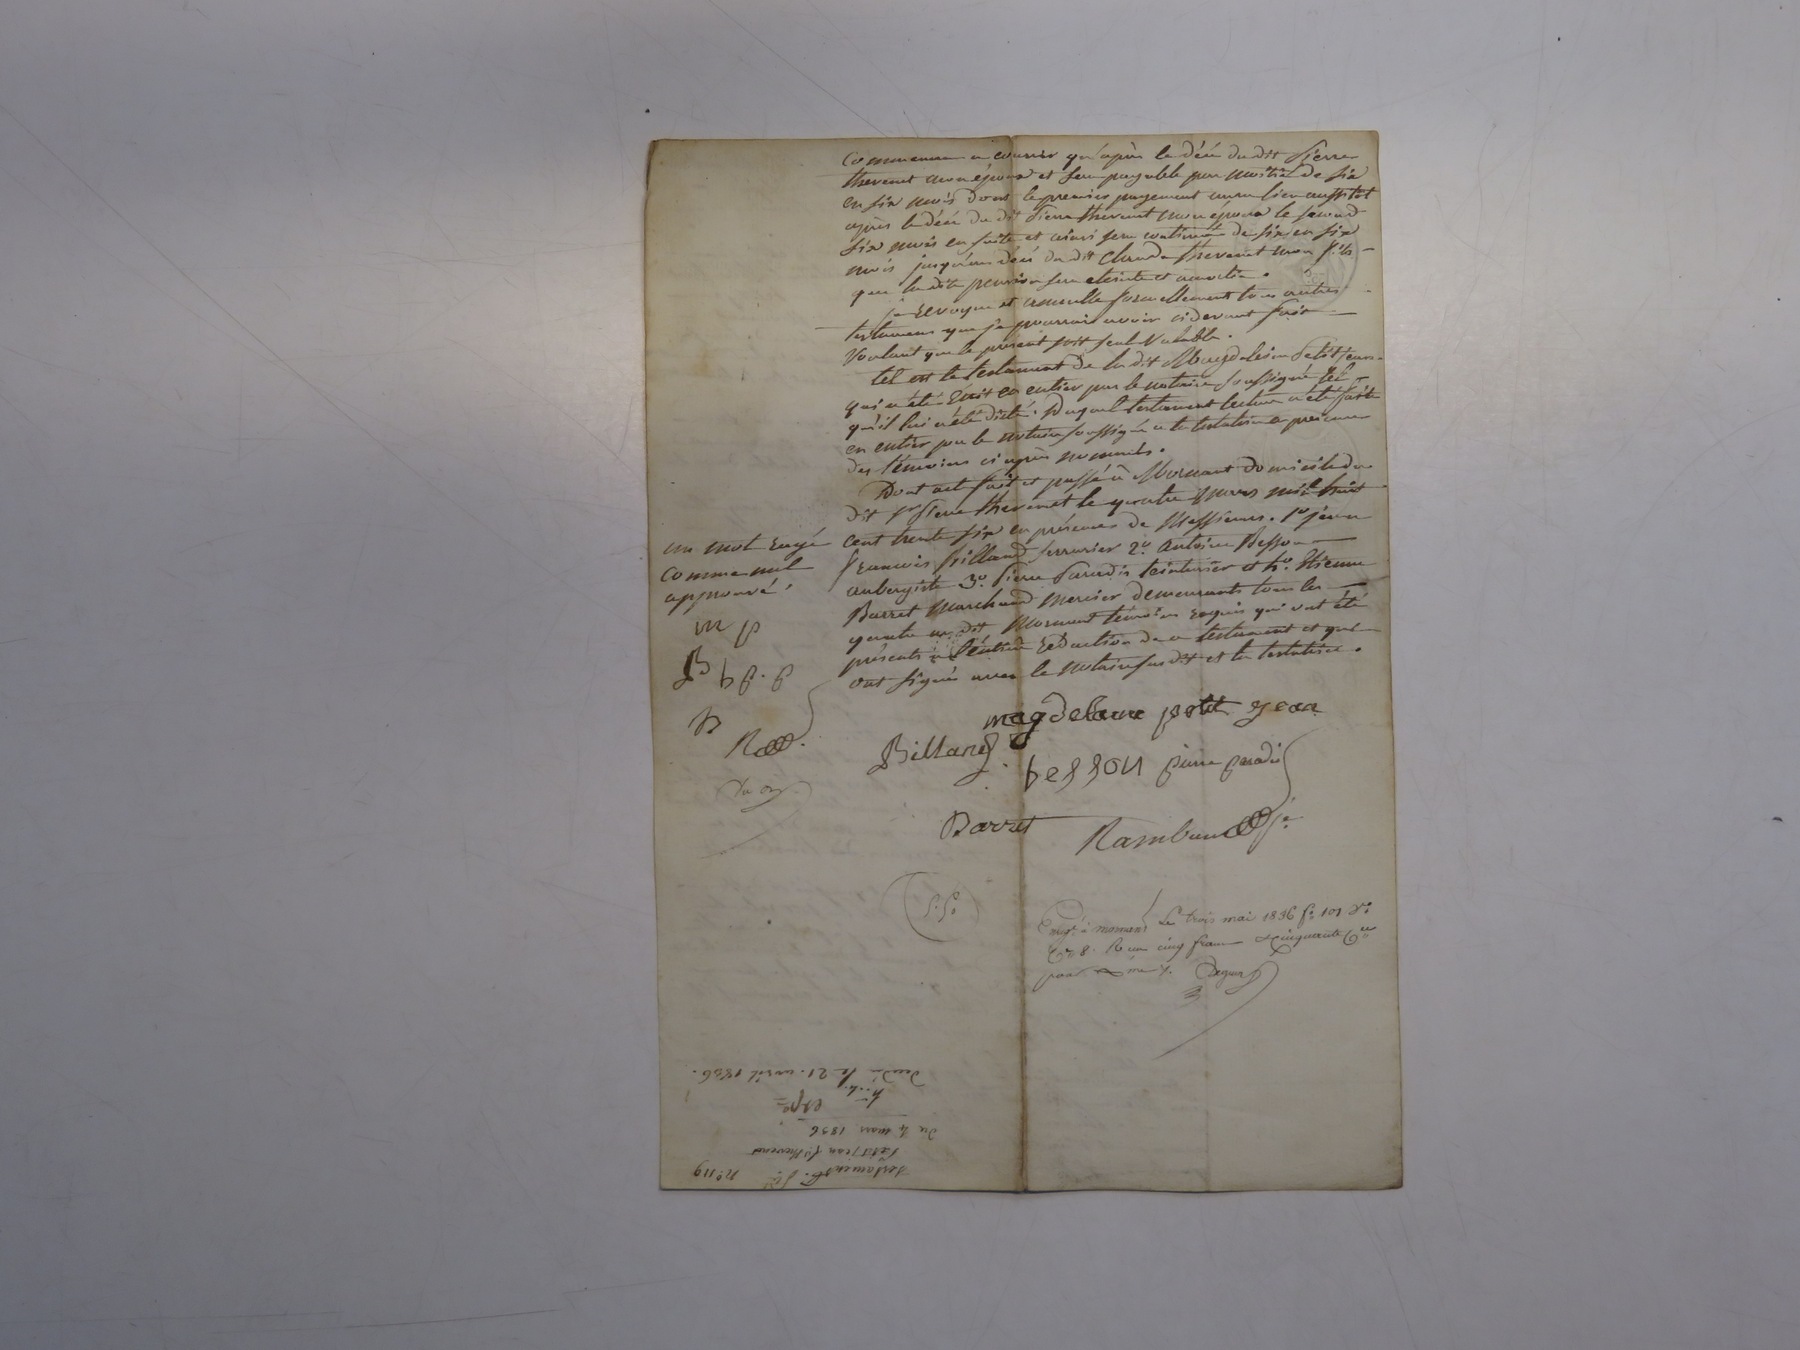 Commencera a courrir qu'après le décé du dit Pierre
thevenet mon époux et sera payable par moitié de six
en six mois dont le premier payement aura lieu aussitôt
après le décé du dit Pierre thevenet mon époux le second
six mois en suite et ainsi sera continué de six en six
mois jusqu'au décé du dit Claude thevenet mon fils
que la dite pension sera eteinte et amortie.
je revoque et annulle formellement tous autres
testamens que je pourrai avoir cidevant fait
Voulant que le présent soit seul Valable.
tel est le testament de la dit Magdeleine Petit jean
qui a été Ecrit en entier par le notaire soussigné tel
qu'il lui a été dicté. Duquel testament lecture a été faite
en entier par le notaire soussigné a la testatrice a presence
des témoins ci après nommés.
Dont acte fait et passé à Mornant domicile du
dit Sr Pierre thevenet le quatre mars mil huit
cent trente six en présence de Messieurs. 1o jean
francois Billand serrurier 2o. Antoine Besson
aubergiste 3o. Pierre Paradis teinturier et 4o. Etienne
Barret Marchand Mercier demeurants tous les
quatre au dit Mornant témoins requis qui ont été
présents à l'entière rédaction de ce testament et qui
ont signés avec le notaire susdit et la testatrice.
un mot rayé
comme nul
approuvé.
m p
B b p. p
B
magdelaine petit jean
Billand
besson pierre paradis
Barret
Rambaud je
Enregt. à mornant Le trois mai 1836 fo. 101 Vo
Cse 8. R cinq francs cinquante Ces
pour
testament
No. 119
Petit jean fe thevenet
Du 4 mars 1836
expo
Décédée le 21. avril 1836.